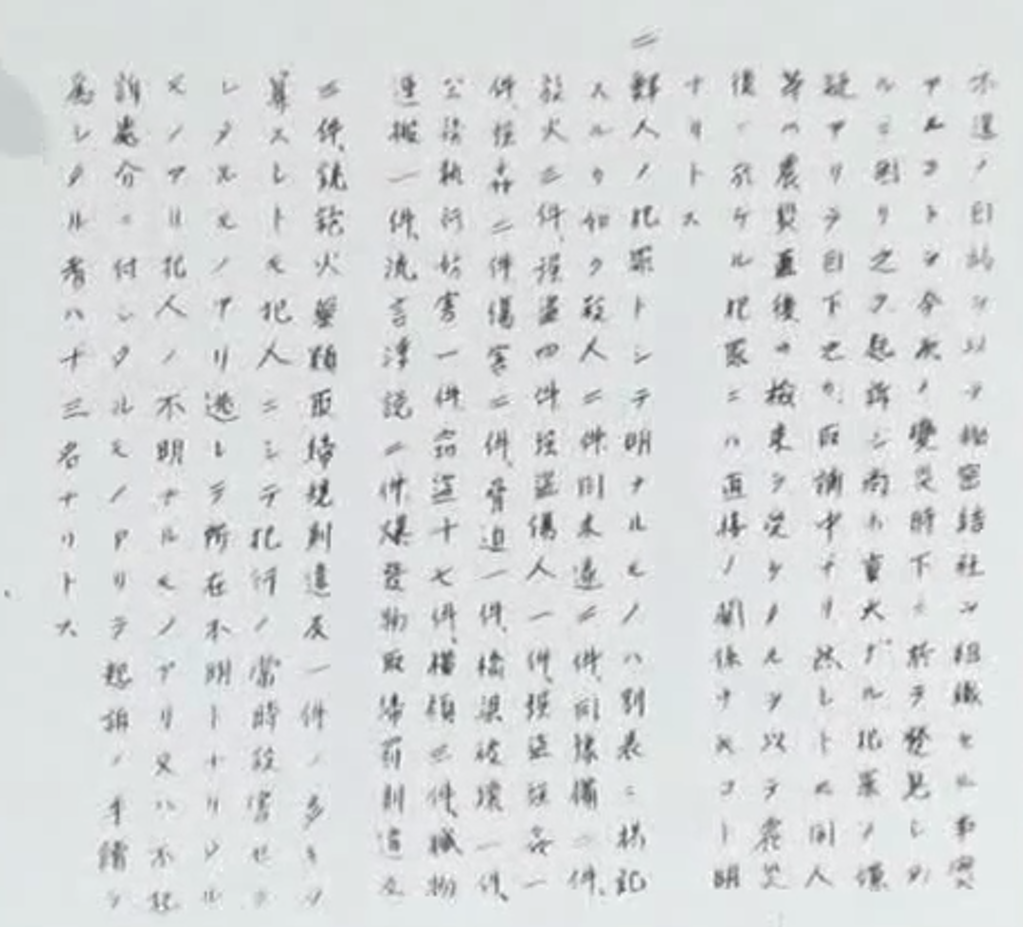 不逞ノ目的ヲ以テ秘密結社ヲ組織セル事実
アルコトヲ今次ノ変災時下ニ於テ発見シタ
ルニ則リ之ヲ起訴シ尚ホ重大ナル犯罪ノ嫌
疑アリテ目下之カ取調中ナリ然レトモ同人
等ハ震災直後ヨリ検束ヲ受ケタルヲ以テ震災
後ニ於ケル犯罪ニハ直接ノ関係ナキコト明
ナリトス
二
鮮人ノ犯罪トシテ明ナルモノハ別表ニ標記
スルカ如ク殺人二件同未遂二件同予備二件、
放火三件、強盗四件強盗傷人一件強盗強姦一
件、強姦二件傷害二件、脅迫一件、橋梁破壊一件、
公務執行妨害一件窃盗十七件、横領三件、贓物
運搬一件、流言浮説二件爆発物取締罰則違反
三件、銃砲火薬類取締規則違反一件ノ多キヲ
算スレトモ犯人ニシテ犯行ノ当時殺害セラ
レタルモノアリ逃レテ所在不明トナリタル
モノアリ犯人ノ不明ナルモノアリ又ハ不起
訴処分ニ付シタルモノアリテ起訴ノ手続ヲ
為シタル者ハ十三名ナリトス